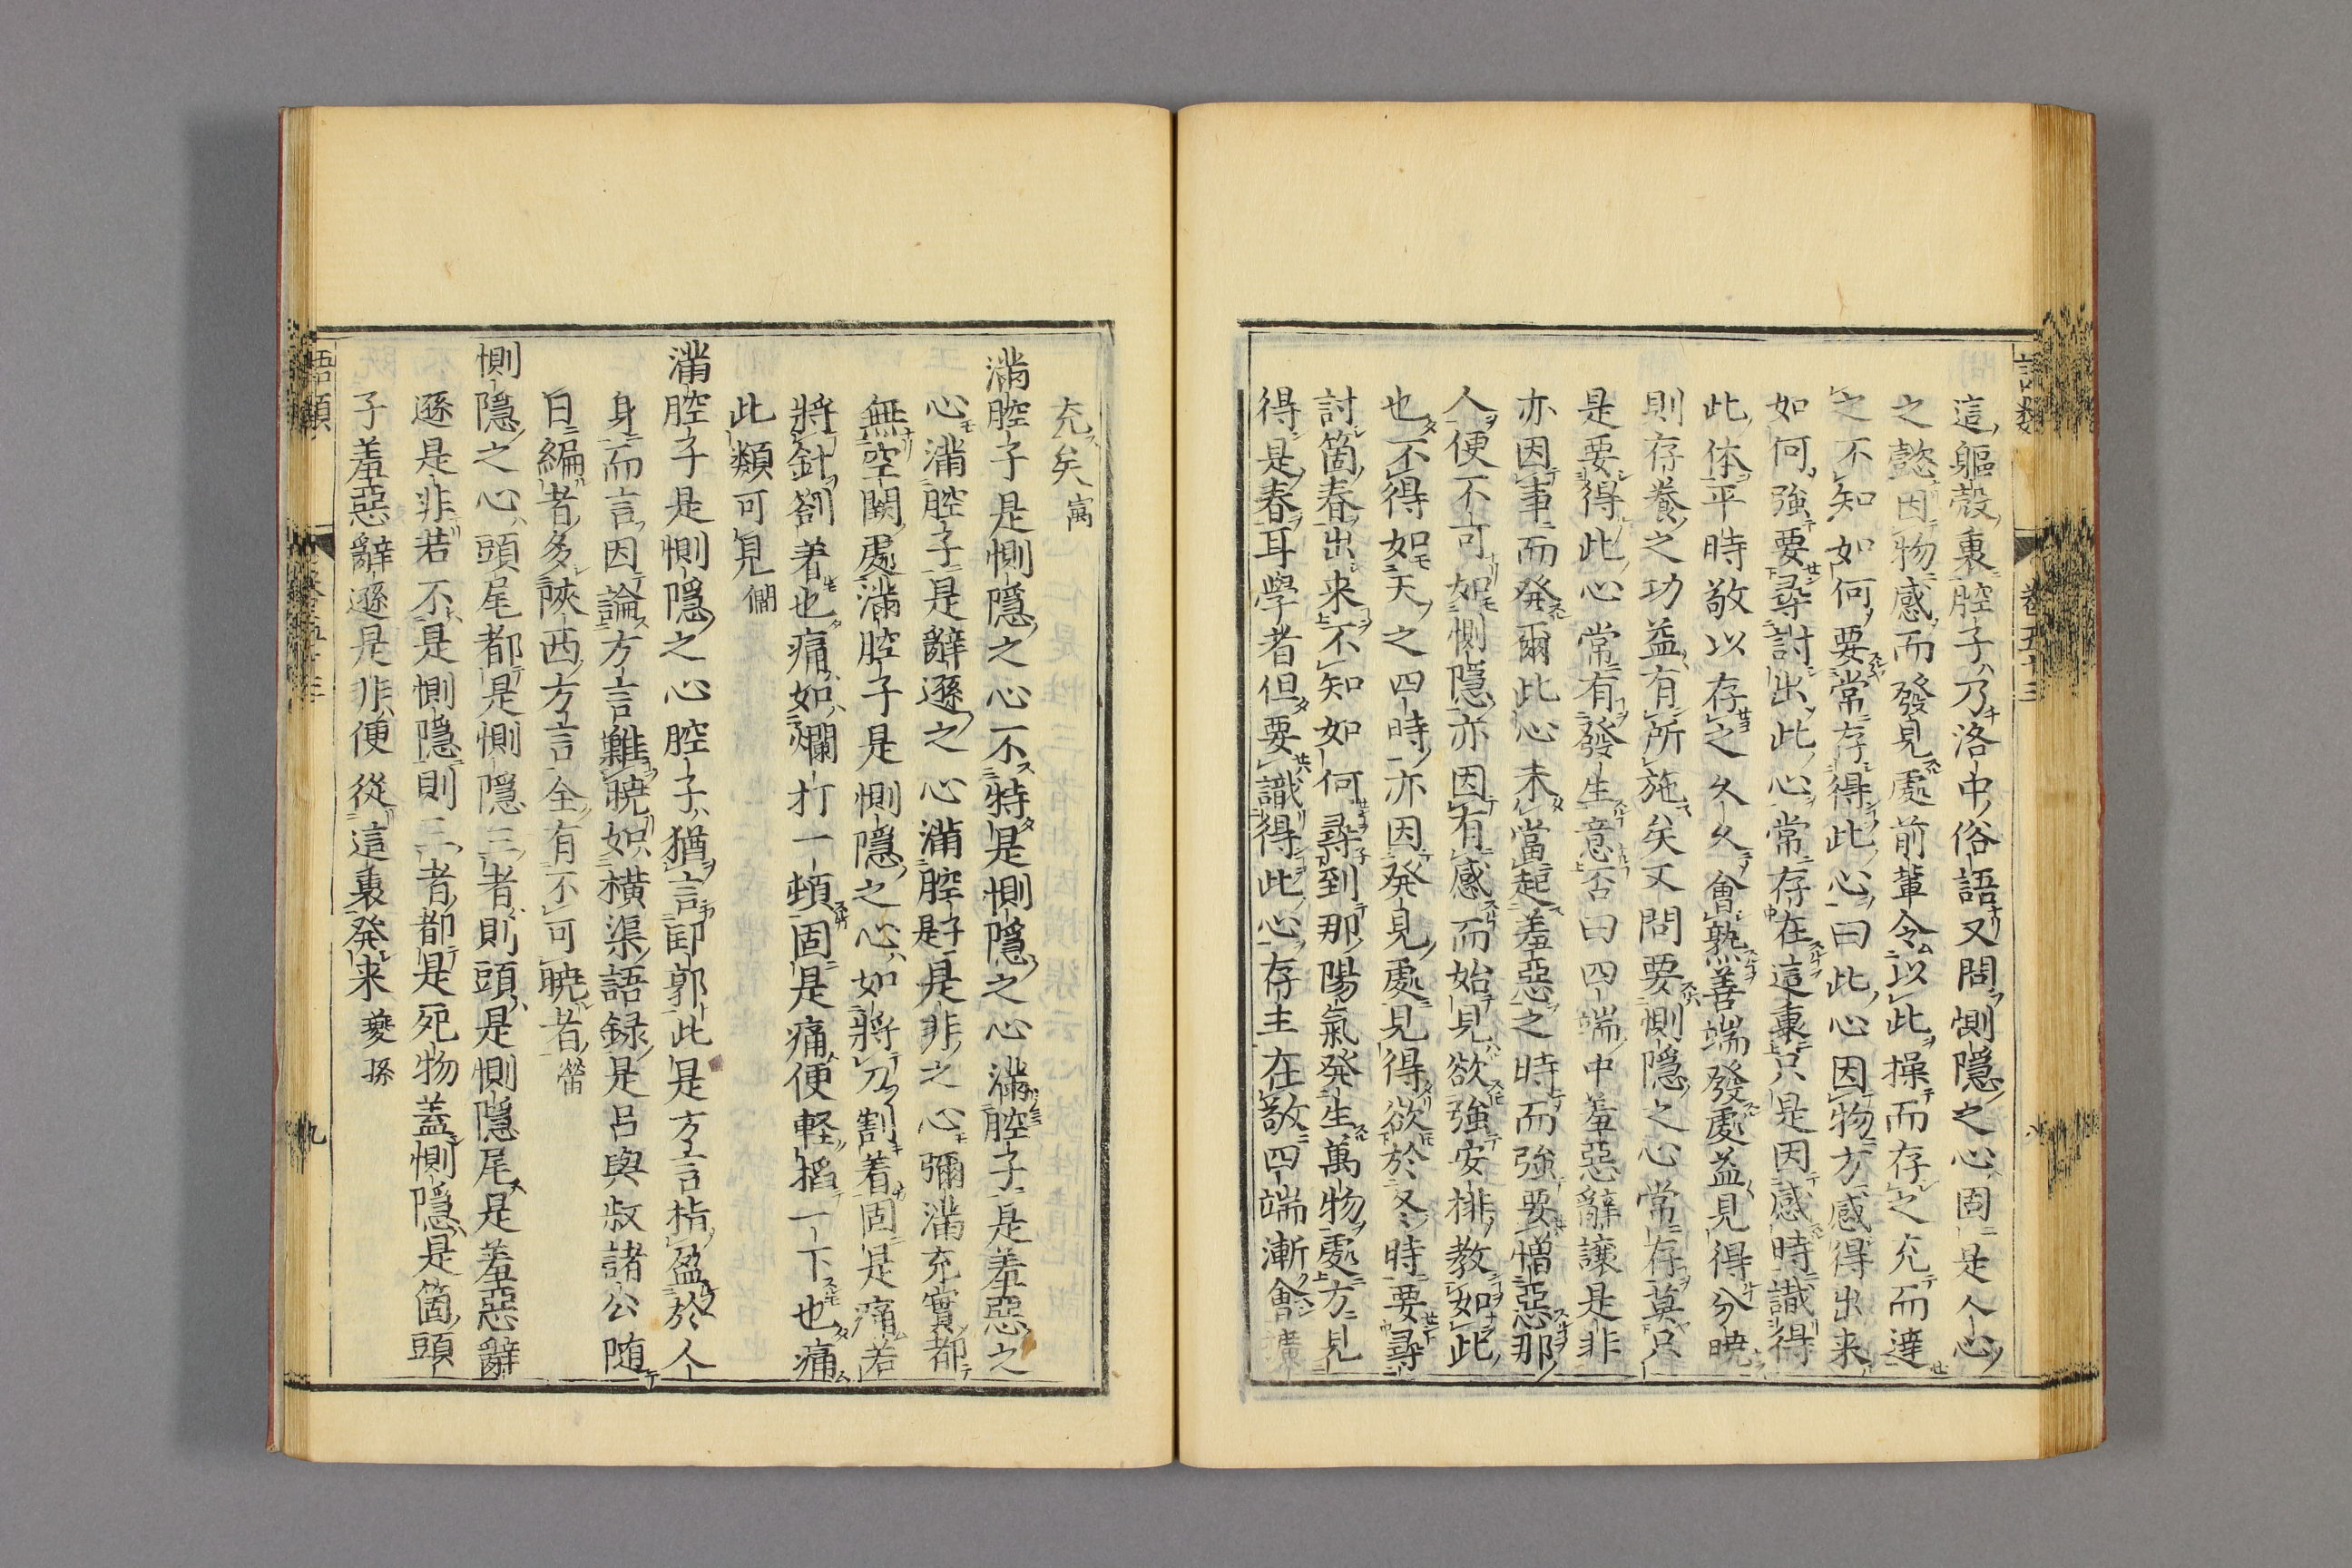 語類
卷五十三
八
這軀殼裏腔子乃洛中俗語又問惻隱之心固是人心
之懿因物感而發見處前輩令以此操而存之充而達
之不知如何要常存得此心曰此心因物方感得出来
如何強要尋討出此心常存在這裏只是因感時識得
此体平時敬以存之久久會熟善端發處益見得分暁
則存養之功益有所施矣又問要惻隱之心常存莫只
是要得此心常有發生意否曰四端中羞惡辭讓是非
亦因事而発爾此心未當起羞惡之時而強要憎惡那
人便不可如惻隱亦因有感而始見欲強安排教如此
也不得如天之四時亦因発見處見得欲於冬時要尋
討箇春出来不知如何尋到那陽氣発生萬物處方見
得是春耳學者但要識得此心存主在敬四端漸會擴
充矣 㝢
滿腔子是惻隱之心不特是惻隱之心滿腔子是羞惡之
心滿腔子是辭遜之心滿腔子是是非之心彌滿充實都
無空闕處滿腔子是惻隱之心如將刀割着固是痛若
將針劄着也痛如爛打一頓固是痛便軽搯一下也痛
此類可見 僩
滿腔子是惻隱之心腔子猶言郛郭此是方言指盈於人
身而言因論方言難暁如横渠語録是呂與叔諸公随
日編者多陜西方言全有不可暁者 㽦
惻隱之心頭尾都是惻隱三者則頭是惻隱尾是羞惡辭
遜是非若不是惻隱則三者都是死物蓋惻隱是箇頭
子羞惡辭遜是非便從這裏発来 夔孫
語類
卷五十三
九